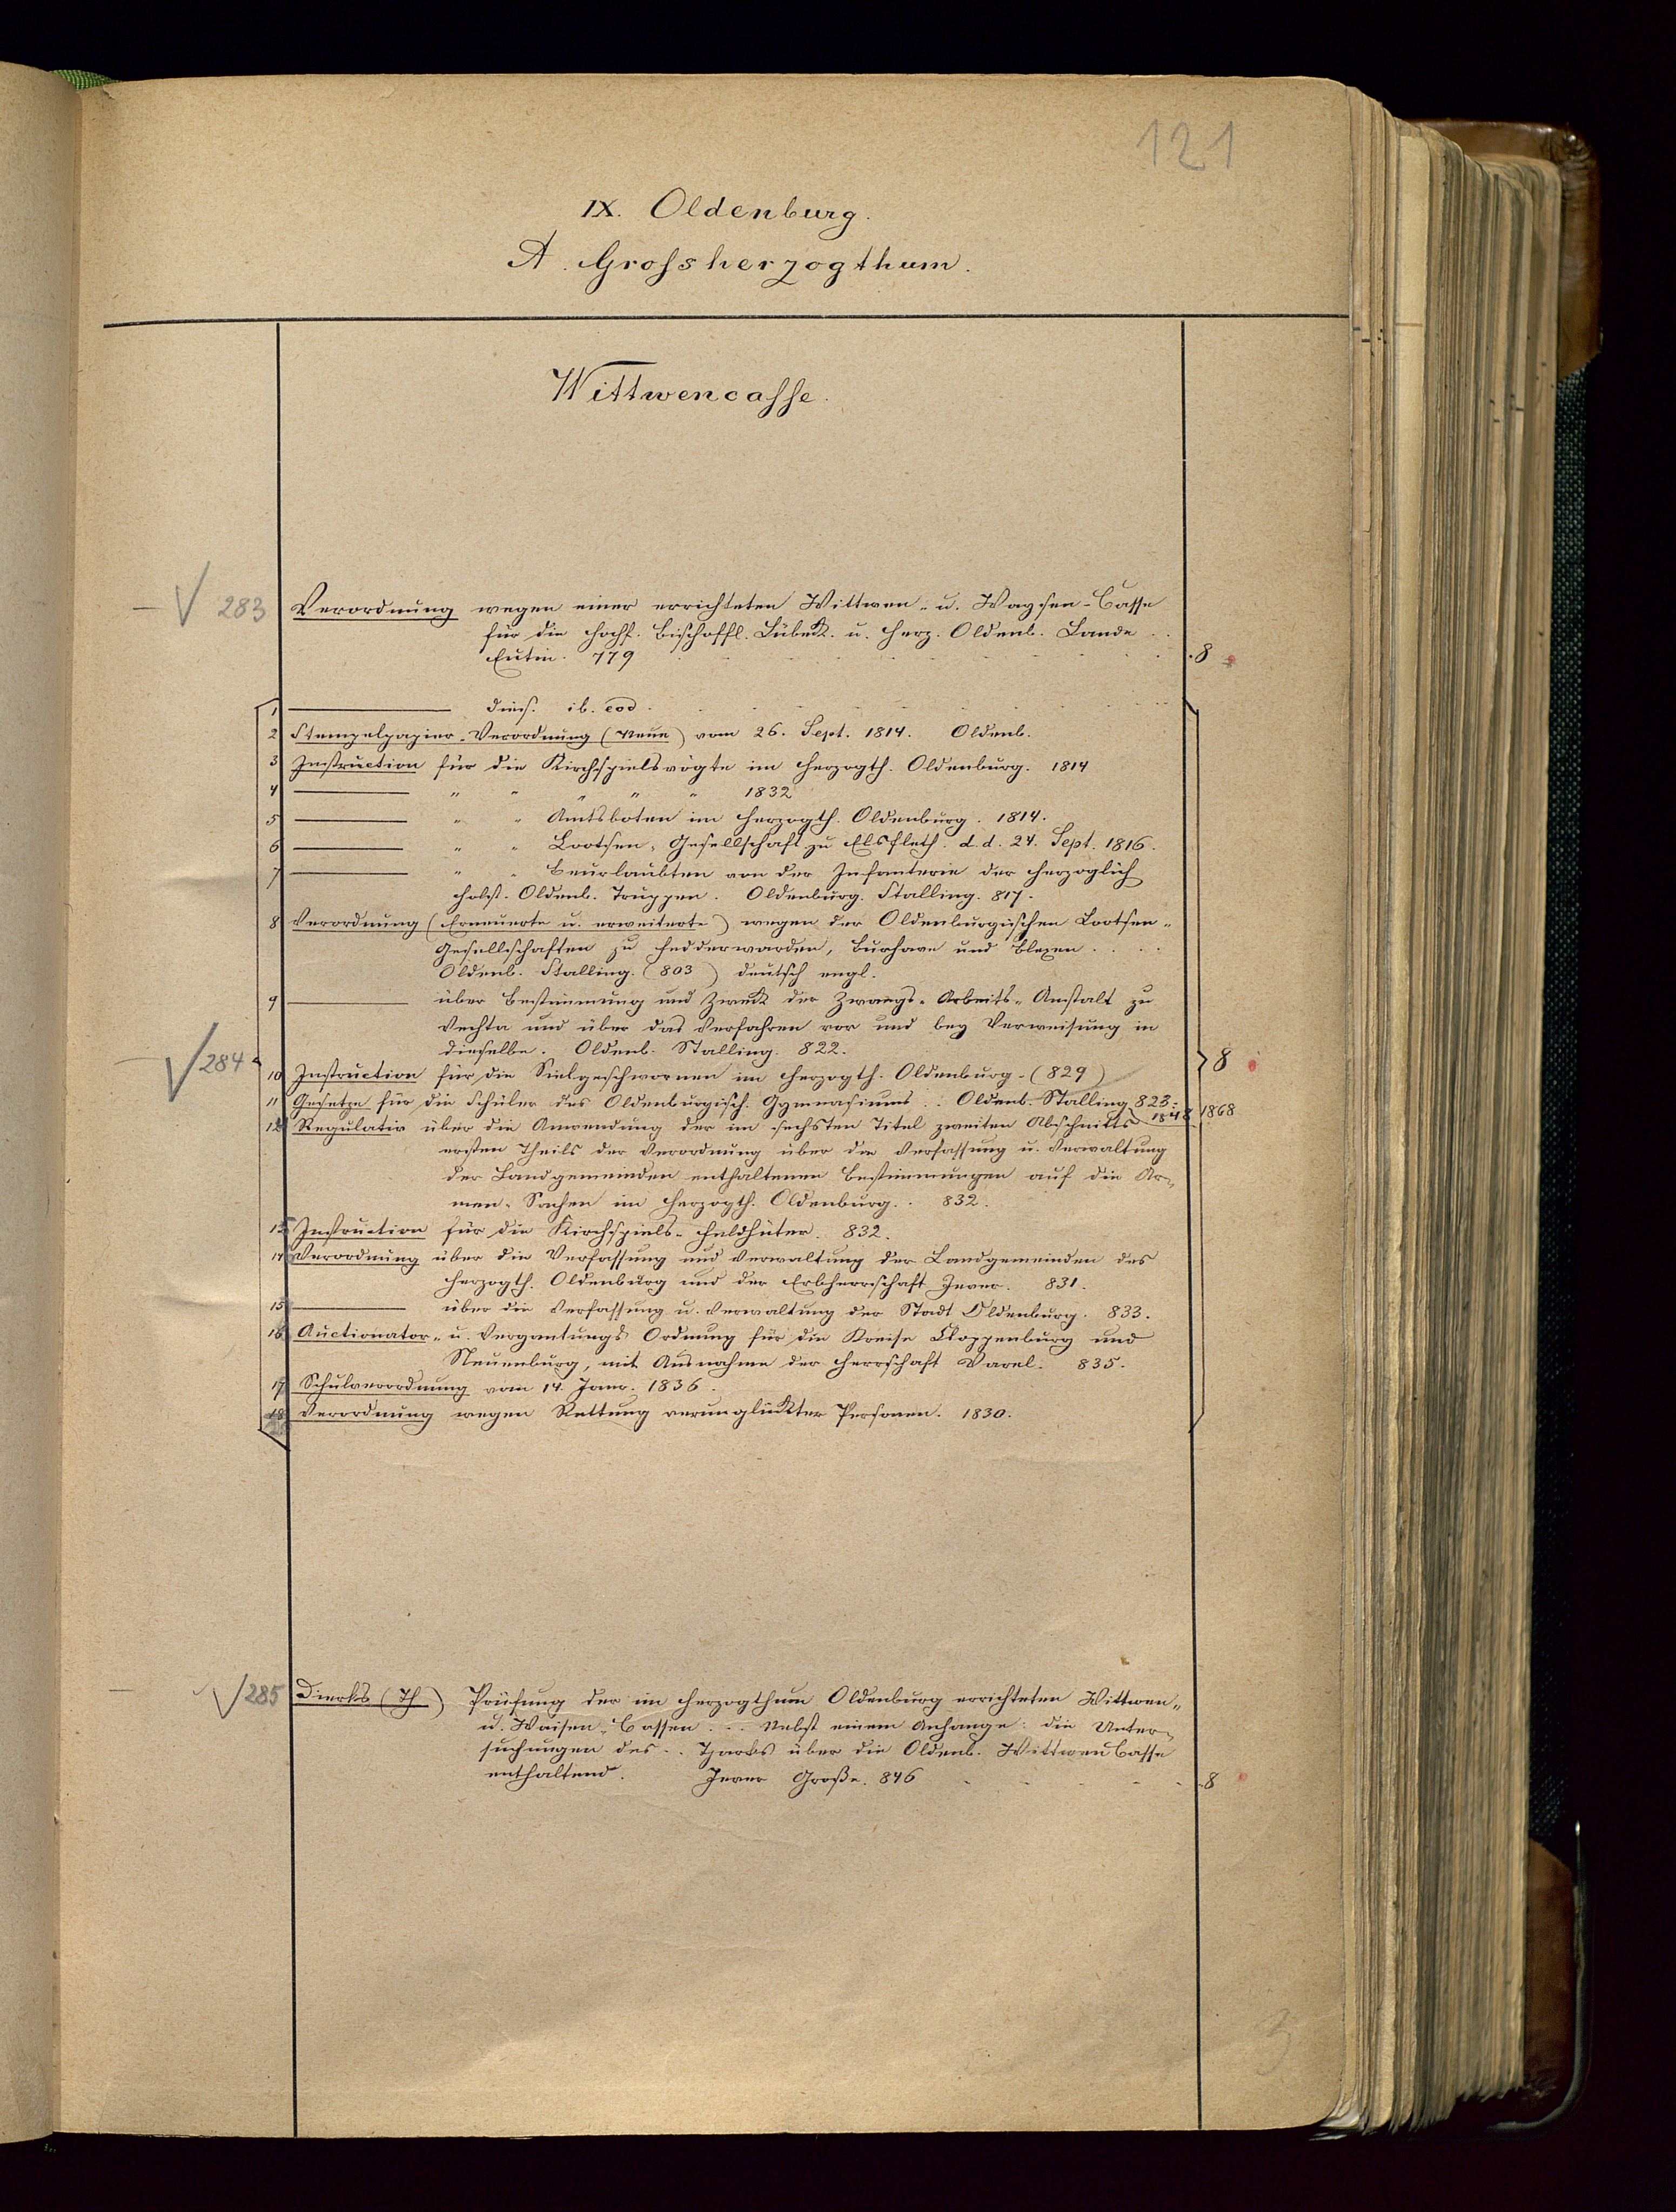 121
IX. Oldenburg.
A. Grossherzogthum.
Wittwencasse.
283 Verordnung wegen einer errichteten Wittwen- u. Waysen-Casse
für die Hochf. Bischöffl. Lübeck. u. Herz. Oldenb. Lande . .
Eutin. 779 . 8
1 ——— dies. ib. eod.
2 Stempelpapier-Verordnung (Neue) vom 26. Sept. 1814. Oldenb.
3 Instruction für die Kirchspielsvögte im Herzogth. Oldenburg. 1814
4 ——— " " " " " 1832
5 ——— " " Amtsboten im Herzogth. Oldenburg. 1814.
6 ——— " " Lootsen-Gesellschaft zu Elsfleth. d. d. 24. Sept. 1816.
7 ——— " " Beurlaubten von der Infanterie der Herzoglich
Holst. Oldenb. Truppen. Oldenburg. Stalling. 817.
8 Verordnung (Erneuerte u. erweiterte) wegen der Oldenburgischen Lootsen-
Gesellschaften zu Fedderwarden, Burhave und Blexen . . . .
Oldenb. Stalling. (803) deutsch engl.
9 ——— über Bestimmung und Zweck der Zwangs-Arbeits-Anstalt zu
Vechta und über das Verfahren vor und bey Verweisung in
dieselbe. Oldenb. Stalling. 822.
284 8
10 Instruction für die Sielgeschwornen im Herzogth. Oldenburg. (829)
11 Gesetze für die Schüler des Oldenburgisch. Gymnasiums . . Oldenb. Stalling 823.
1848 1868
12 Regulativ über die Anwendung der im sechsten Titel zweiten Abschnitts
ersten Theils der Verordnung über die Verfassung u. Verwaltung
der Landgemeinden enthaltenen Bestimmungen auf die Ar-
men-Sachen im Herzogth. Oldenburg. . 832.
13 Instruction für die Kirchspiels-Feldhüter. 832.
14 Verordnung über die Verfassung und Verwaltung der Landgemeinden des
Herzogth. Oldenburg und der Erbherrschaft Jever. 831.
15 ——— über die Verfassung u. Verwaltung der Stadt Oldenburg. 833.
16 Auctionator- u. Vergantungs Ordnung für die Kreise Cloppenburg und
Neuenburg, mit Ausnahme der Herrschaft Varel. 835.
17 Schulverordnung vom 14. Janr. 1836.
18 Verordnung wegen Rettung verunglückter Personen. 1830.
285 Dierks (Th) Prüfung der im Herzogthum Oldenburg errichteten Wittwen-
u. Waisen-Cassen . . . Nebst einem Anhange: die Unter-
suchungen des . . Tjarks über die Oldenb. Wittwen Casse
enthaltend. Jever Große. 846 . 8
3